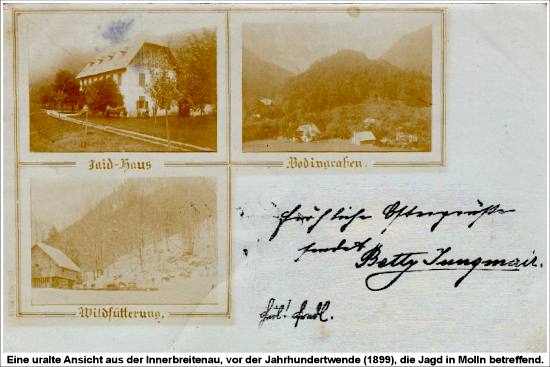 Jaid-Haus
Bodingraben.
Wildfütterung.
fröhliche Ostergrüße
sendet
Betty Jungmair.
Eine uralte Ansicht aus der Innerbreitenau, vor der Jahrhundertwende (1899), die Jagd in Molln betreffend.